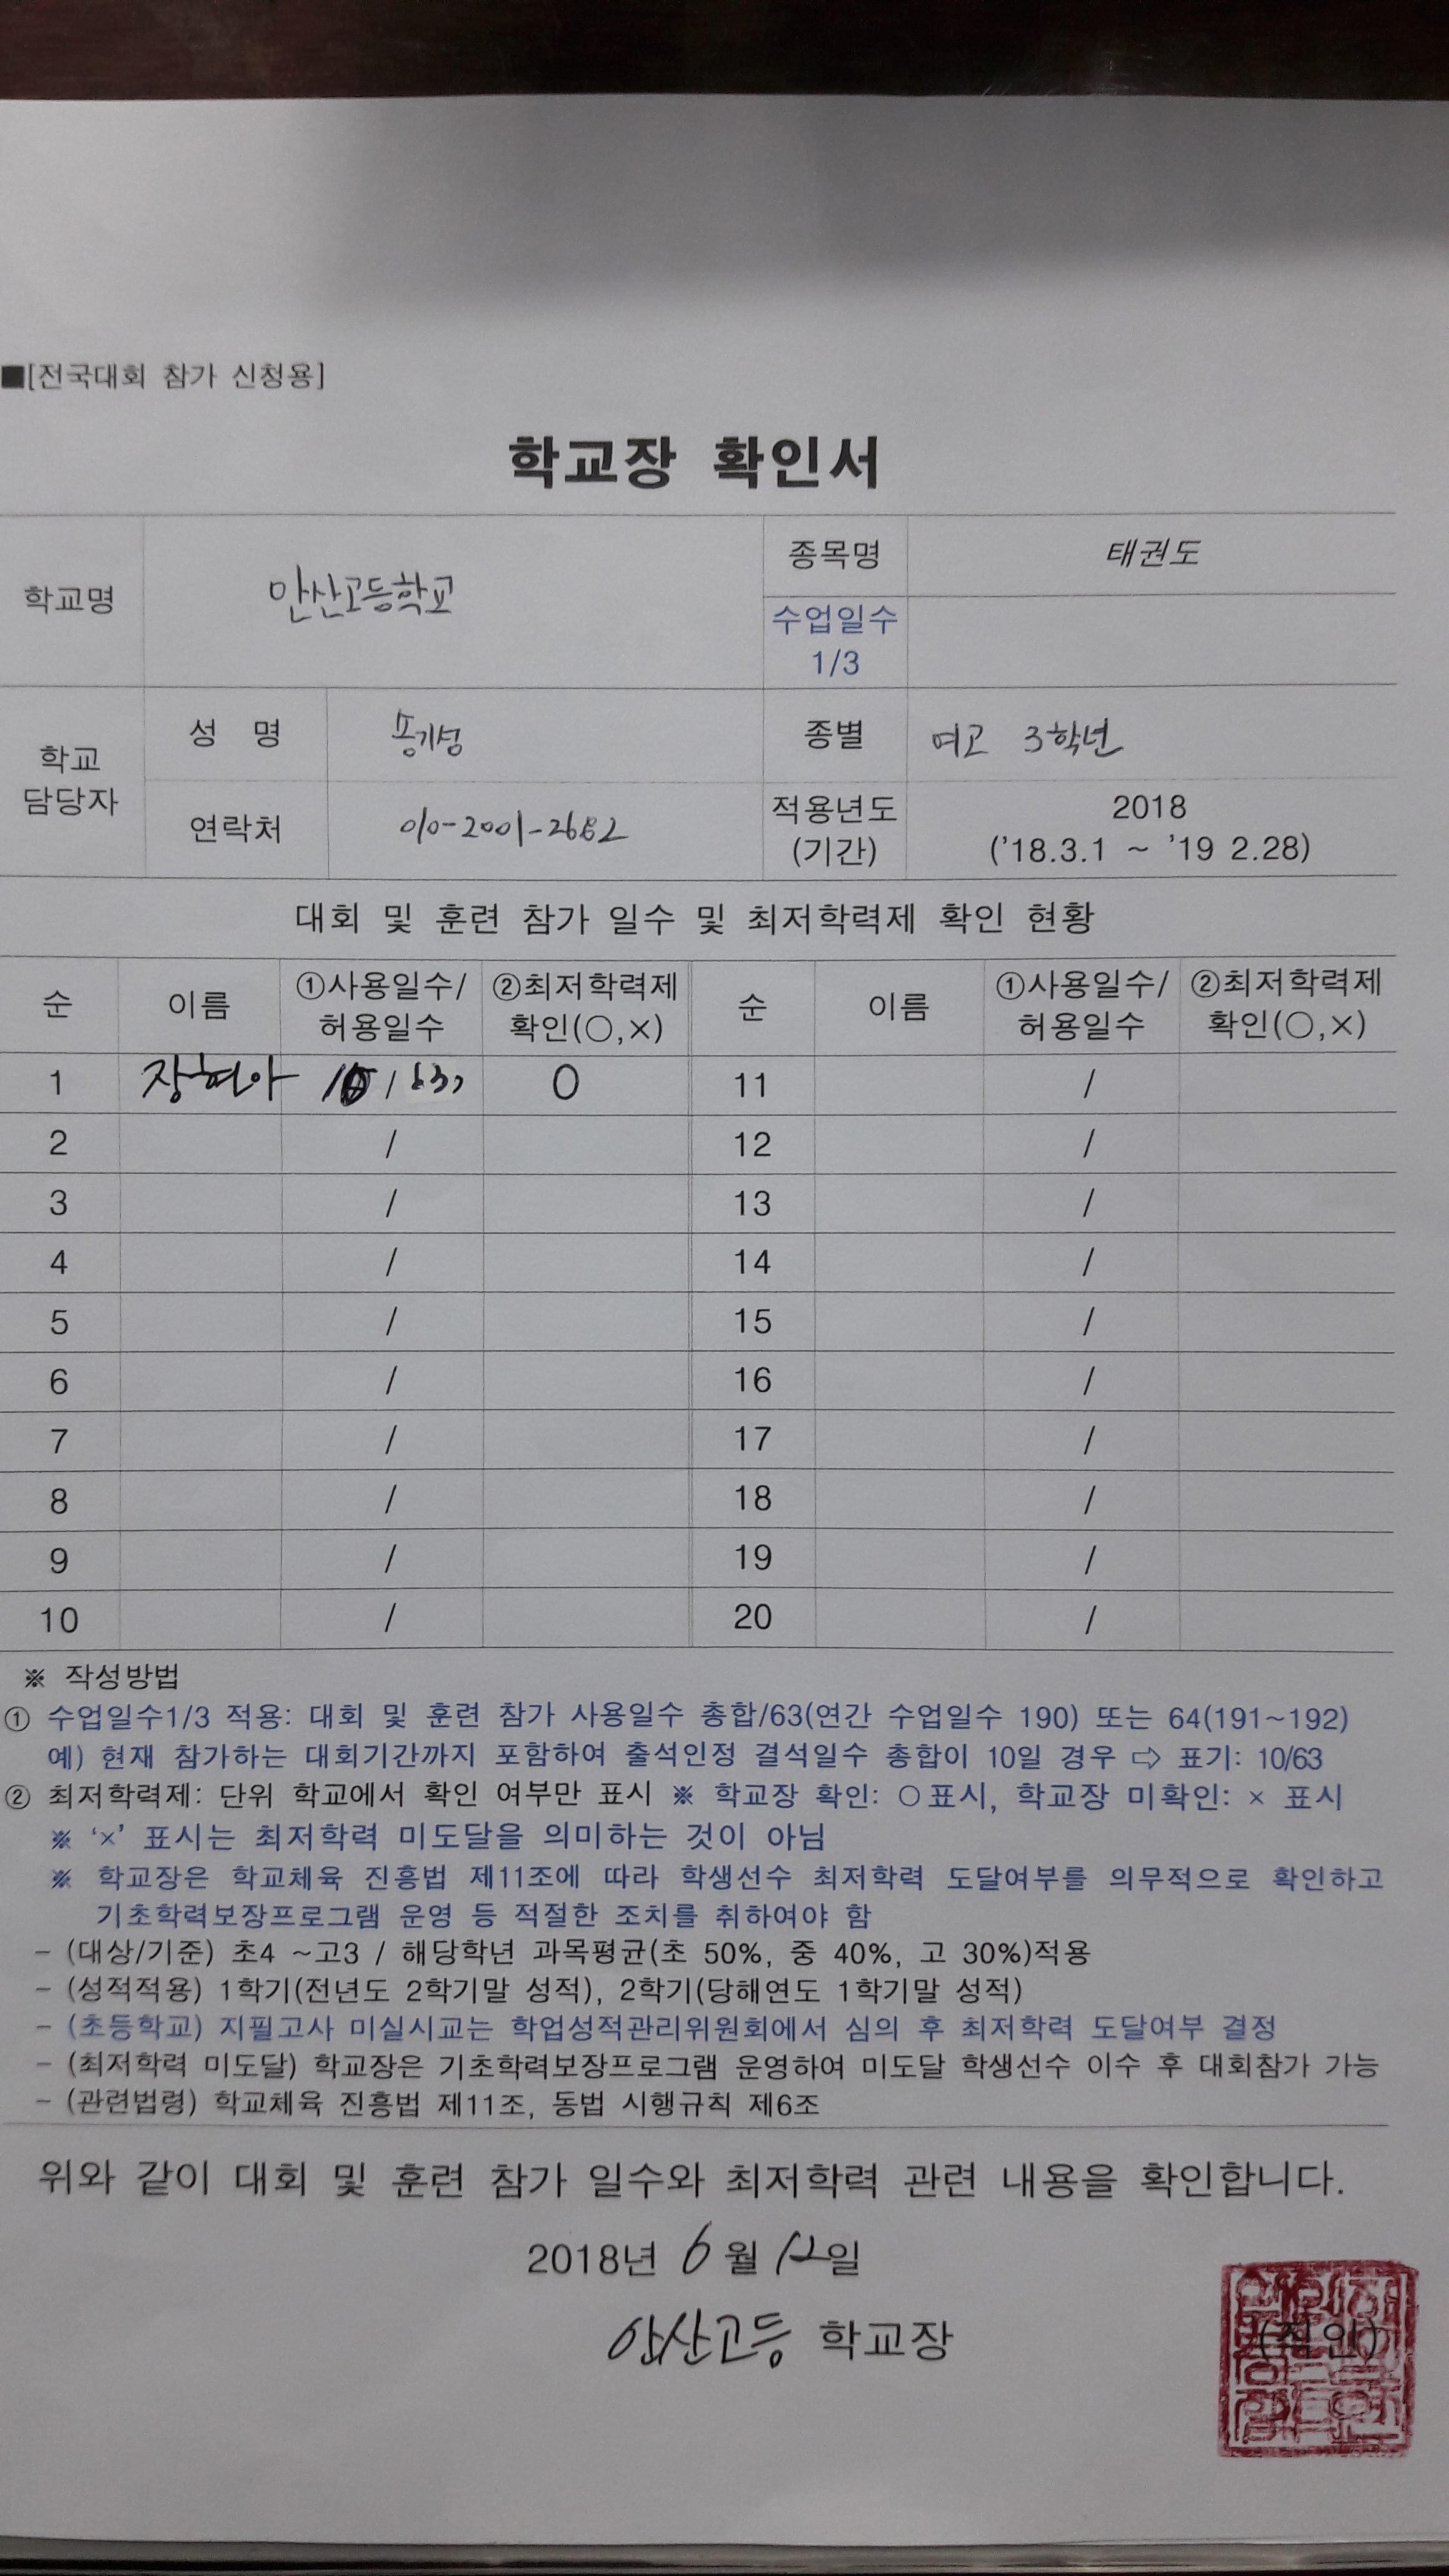 ■[전국대회 참가 신청용]
학교장 확인서
학교명 안산고등학교 종목명 태권도
수업일수 1/3
학교 담당자 성 명 홍기성 종별 여고 3학년
연락처 010-2001-2682 적용년도 (기간) 2018 ('18.3.1 ~ '19 2.28)
대회 및 훈련 참가 일수 및 최저학력제 확인 현황
순 이름 ①사용일수/허용일수 ②최저학력제 확인(○,×) 순 이름 ①사용일수/허용일수 ②최저학력제 확인(○,×)
1 장현아 / 63 O 11 /
2 / 12 /
3 / 13 /
4 / 14 /
5 / 15 /
6 / 16 /
7 / 17 /
8 / 18 /
9 / 19 /
10 / 20 /
※ 작성방법
① 수업일수1/3 적용: 대회 및 훈련 참가 사용일수 총합/63(연간 수업일수 190) 또는 64(191~192)
예) 현재 참가하는 대회기간까지 포함하여 출석인정 결석일수 총합이 10일 경우 ⇨ 표기: 10/63
② 최저학력제: 단위 학교에서 확인 여부만 표시 ※ 학교장 확인: ○표시, 학교장 미확인: × 표시
※ ‘×’ 표시는 최저학력 미도달을 의미하는 것이 아님
※ 학교장은 학교체육 진흥법 제11조에 따라 학생선수 최저학력 도달여부를 의무적으로 확인하고
기초학력보장프로그램 운영 등 적절한 조치를 취하여야 함
- (대상/기준) 초4 ~고3 / 해당학년 과목평균(초 50%, 중 40%, 고 30%)적용
- (성적적용) 1학기(전년도 2학기말 성적), 2학기(당해연도 1학기말 성적)
- (초등학교) 지필고사 미실시교는 학업성적관리위원회에서 심의 후 최저학력 도달여부 결정
- (최저학력 미도달) 학교장은 기초학력보장프로그램 운영하여 미도달 학생선수 이수 후 대회참가 가능
- (관련법령) 학교체육 진흥법 제11조, 동법 시행규칙 제6조
위와 같이 대회 및 훈련 참가 일수와 최저학력 관련 내용을 확인합니다.
2018년 6월 12일
안산고등 학교장 (직인)